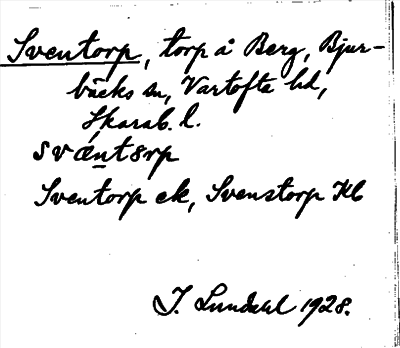 Sventorp, torp å Berg, Bjur-
bäcks sn, Vartofta hd,
Skarab. l.
svæntorp
Sventorp ek, Svenstorp Kb
I. Lundahl 1928.